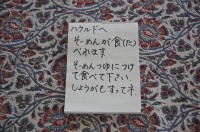 ハクルドへ
そーめんが食(た)
べれます
そーめんつゆにつけ
て食べて下さい。
しょうがもすってネ